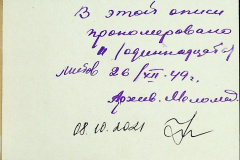 В этой описи
пронумеровано
11 /одиннадцать/
листов 26/XII-49г.
Архив. Меломед
08.10.2021